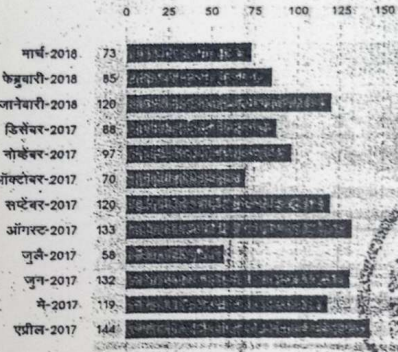 0 25 50 75 100 125 150
मार्च-2018 73
फेब्रुवारी-2018 85
जानेवारी-2018 120
डिसेंबर-2017 88
नोव्हेंबर-2017 97
ऑक्टोबर-2017 70
सप्टेंबर-2017 120
ऑगस्ट-2017 133
जुलै-2017 58
जुन-2017 132
मे-2017 119
एप्रील-2017 144